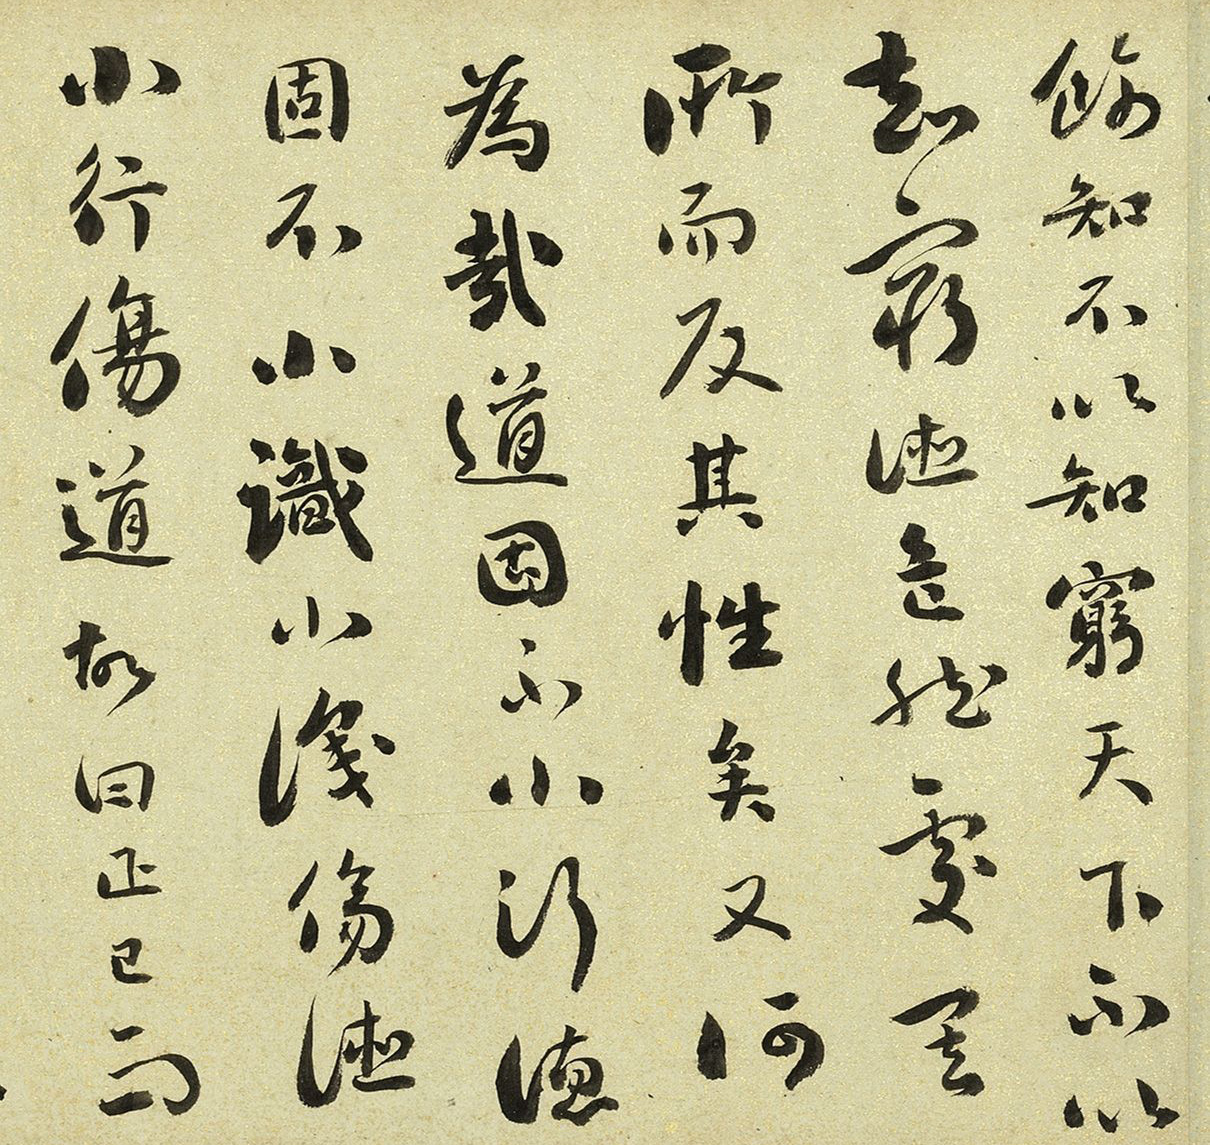 飾知不以知窮天下不以
知窮德危然處其
所而反其性矣又何
為哉道固不小行德
固不小識小識傷德
小行傷道故曰正己而